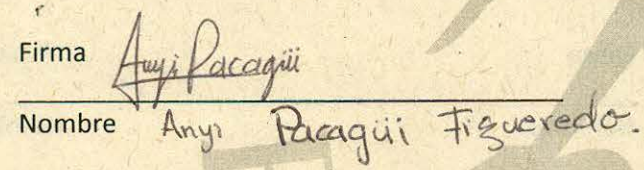 Firma Anyi Pacagüi
Nombre Anyi Pacagüi Figueredo.